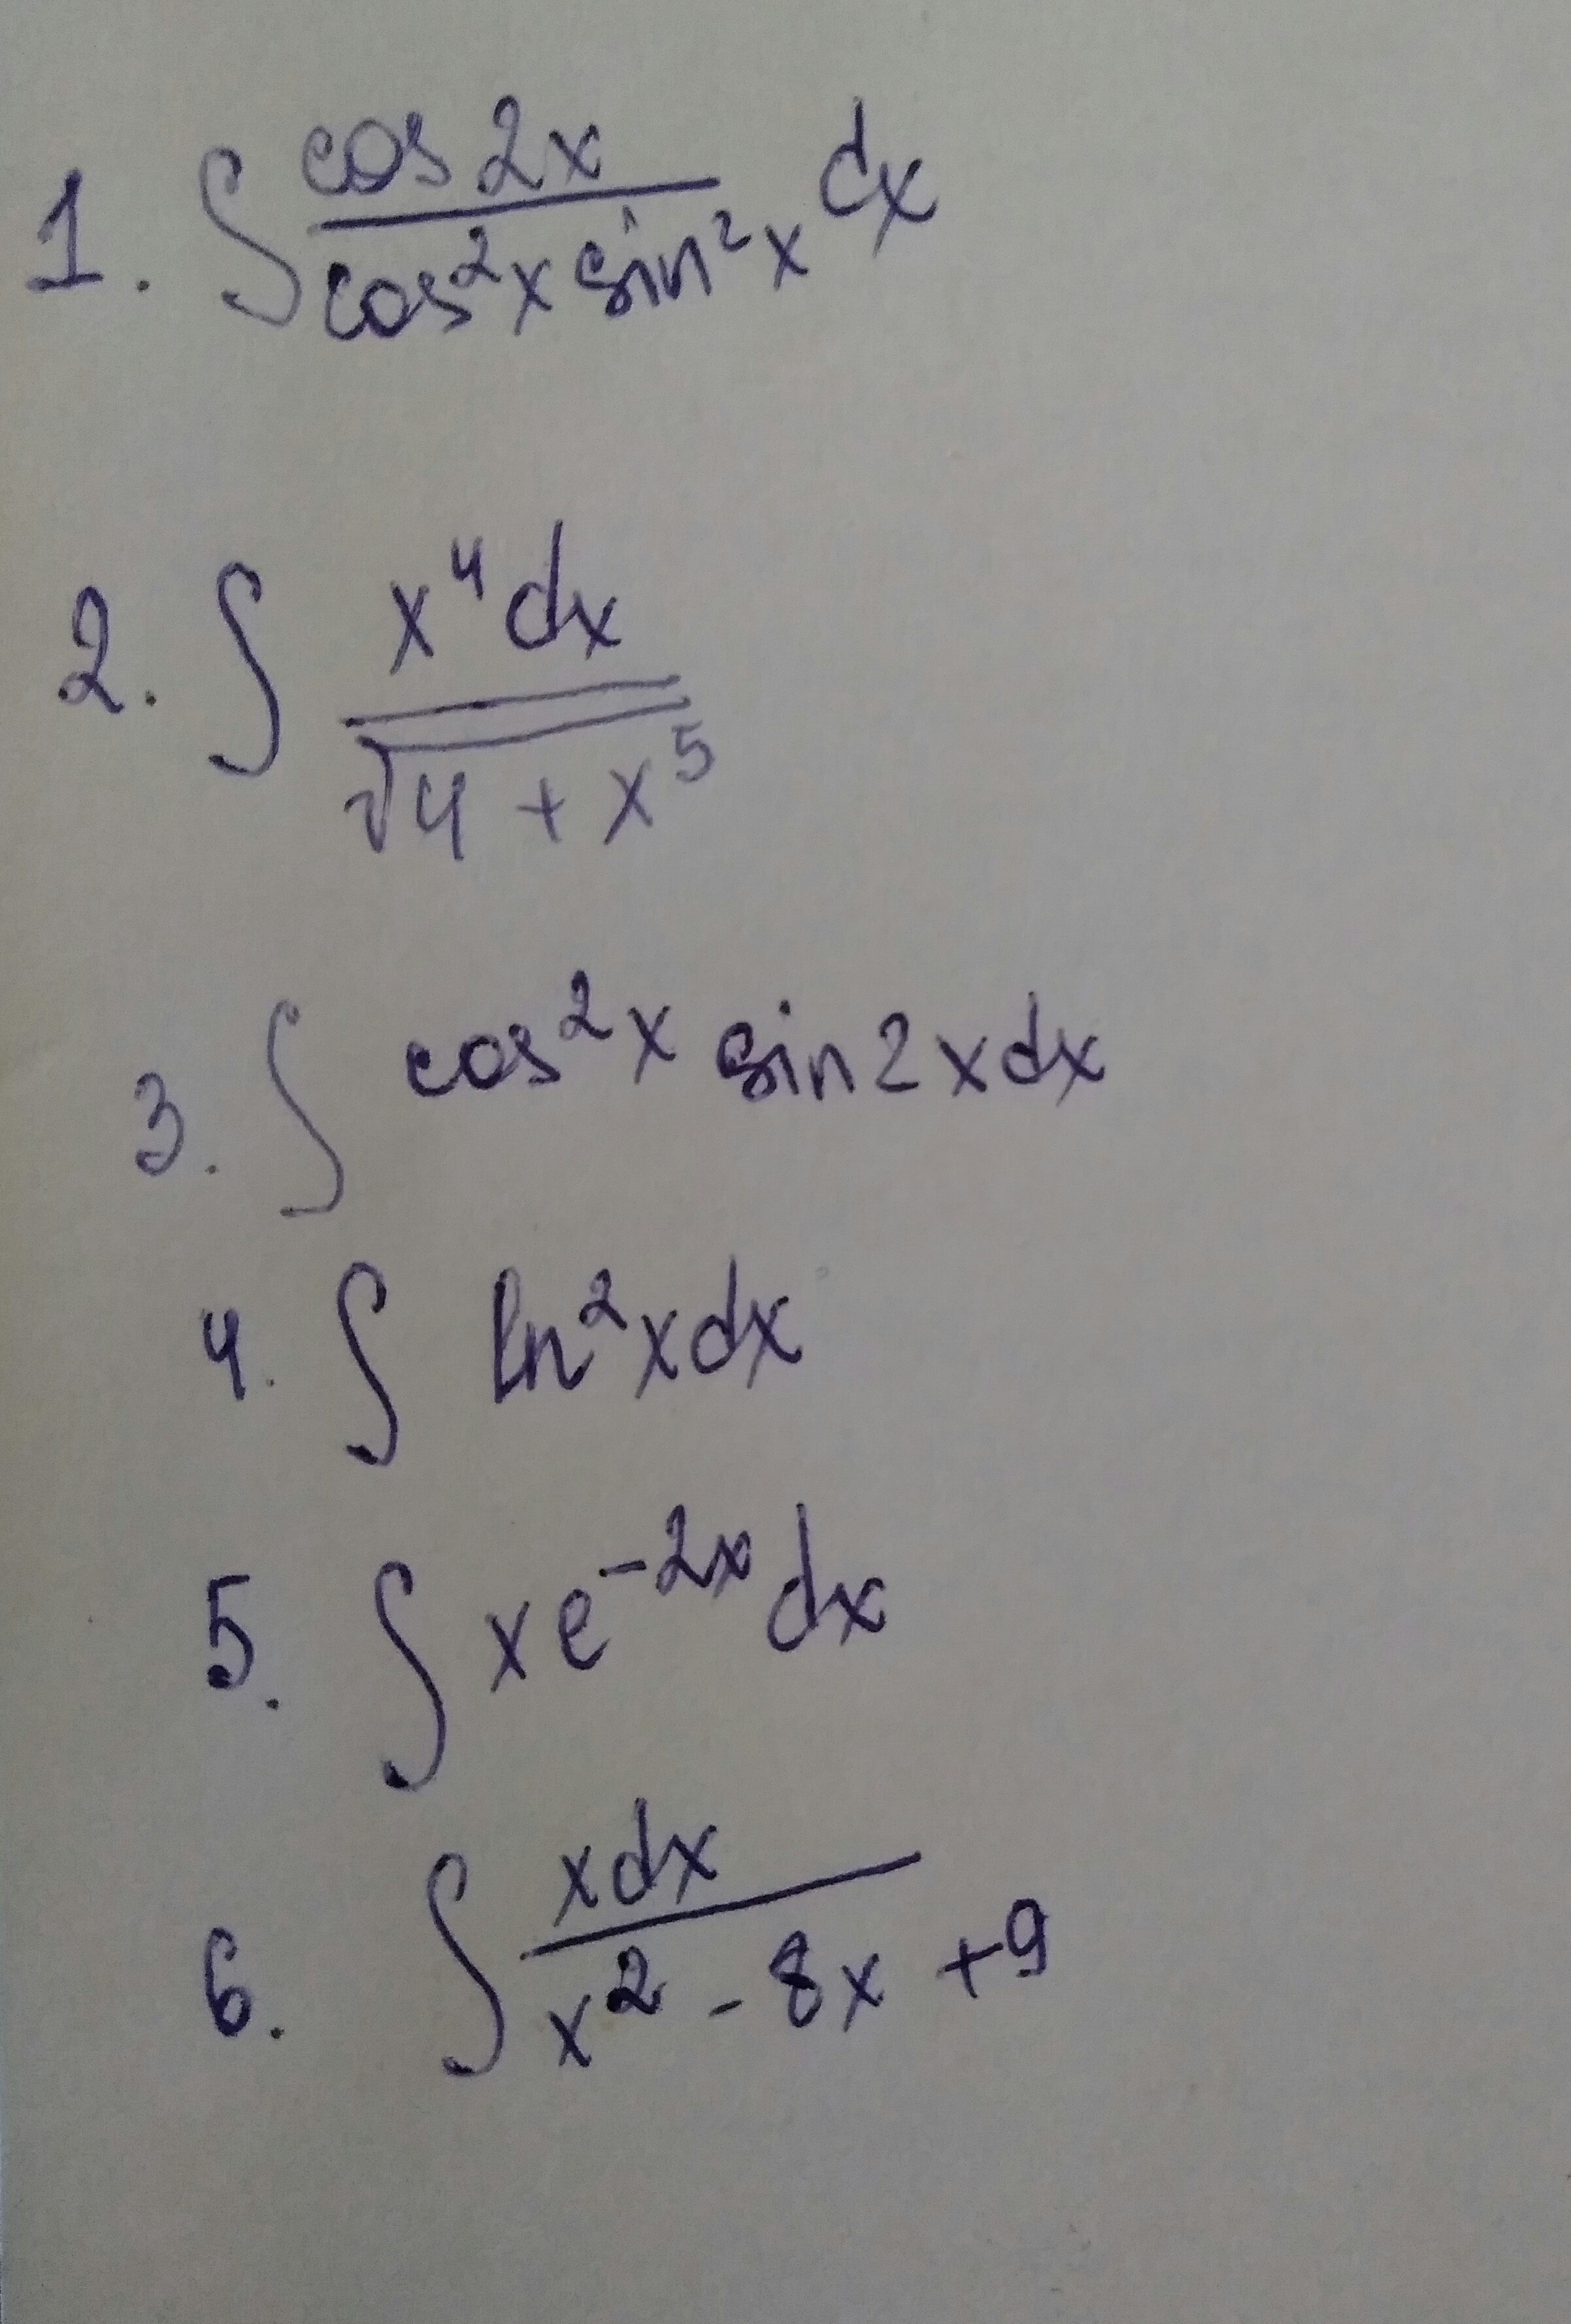 1. ∫ cos 2x / cos²x sin²x dx
2. ∫ x⁴dx / √4 + x⁵
3. ∫ cos²x sin2xdx
4. ∫ ln²xdx
5. ∫ xe⁻²ˣdx
6. ∫ xdx / x² - 8x + 9